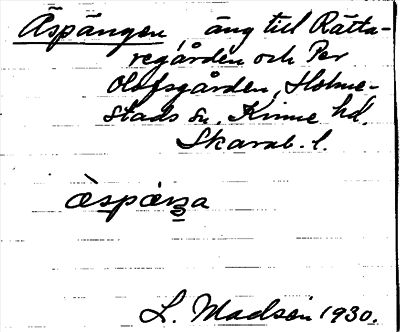 Äspängen, äng till Rätta-
regården och Per
Olofsgården, Holme-
stads sn. Kinne hd.
Skarab. l.
L. Madsen 1930.